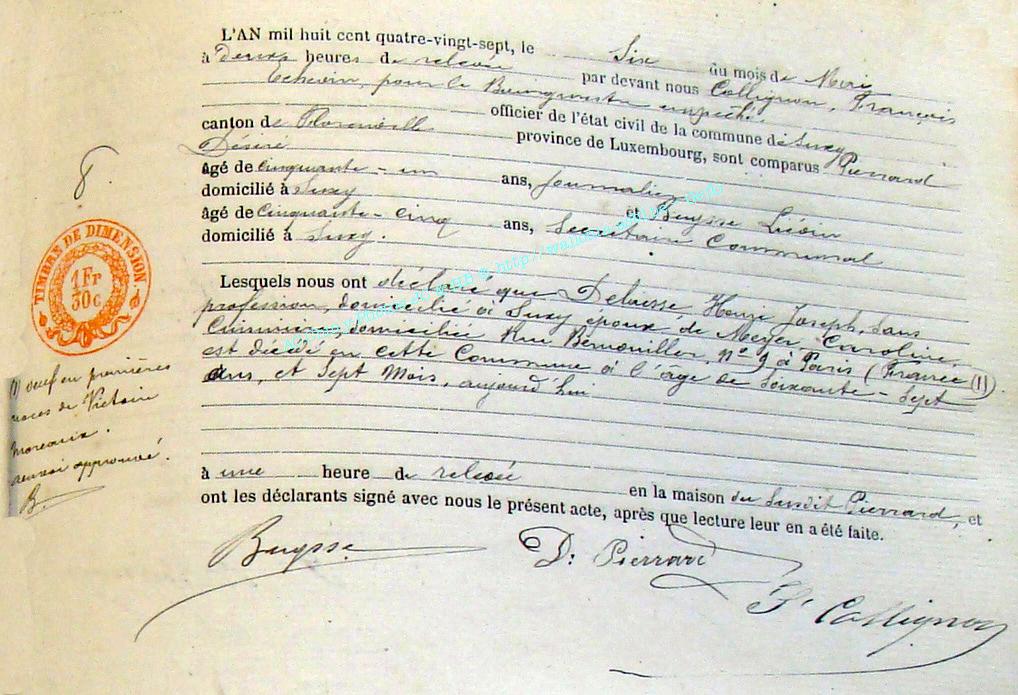 L'AN mil huit cent quatre-vingt-sept, le Six du mois de Mai
à deux heures de relevée par devant nous Collignon, François
Echevin, pour le Bourgmestre empêché officier de l'état civil de la commune de Suxy
canton de Florenville province de Luxembourg, sont comparus Pierrard
Désiré
âgé de cinquante-un ans, Journalier
domicilié à Suxy et Buysse Liévin
âgé de cinquante-cinq ans, Secrétaire Communal
domicilié à Suxy.
Lesquels nous ont déclaré que Delaisse, Henri Joseph, sans
profession, domicilié à Suxy époux de Meyer, Caroline,
Cuisinière, domicilié Rue n° 9 à Paris (France (1)
est décédé en cette Commune à l'âge de soixante-sept
ans, et sept Mois, aujourd'hui
à une heure de relevée en la maison du susdit Pierrard, et
ont les déclarants signé avec nous le présent acte, après que lecture leur en a été faite.
Buysse D: Pierrard
F. Collignon
8.
TIMBRE DE DIMENSION.
1 Fr
30c.
(1) veuf en premières
noces de Victoire
Moreaux.
renvoi approuvé.
B.